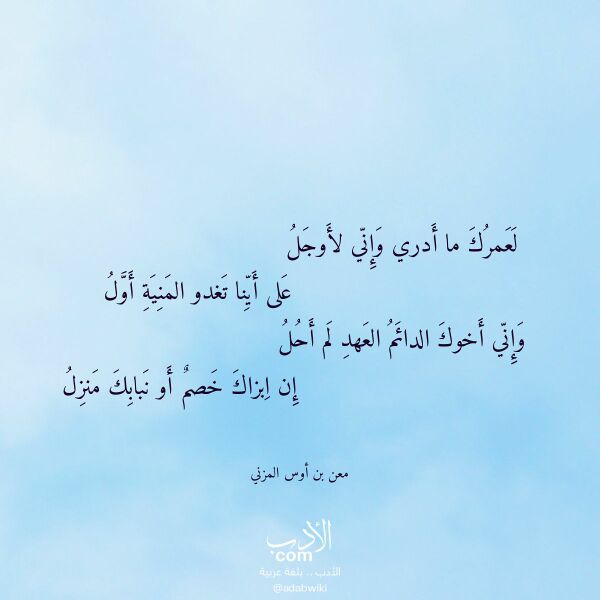 لَعَمرُكَ ما أَدري وَإِنّي لأَوجَلُ
عَلى أَيِّنا تَغدو المَنِيَةِ أَوَّلُ
وَإِنّي أَخوكَ الدائَمُ العَهدِ لَم أَحُلُ
إِن اِبزاكَ خَصمٌ أَو نَبابِكَ مَنزِلُ
معن بن أوس المزني
الأدب
com
الأدب .. بلغة عربية
@adabwiki